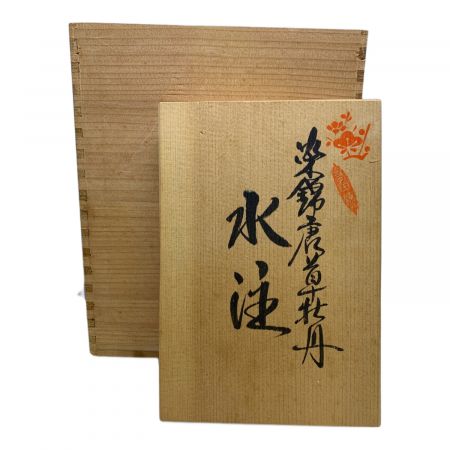 染錦唐草牡丹
水注